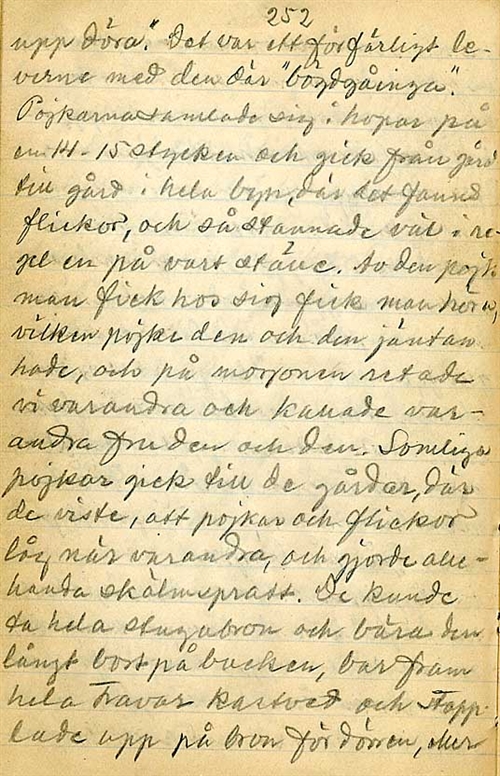 252
upp döra". Det var ett förfärligt le-
verne med den där "böndgåinga".
Pojkarna samlade sig i hopar på
en 14-15 stycken och gick från gård
till gård i hela byn, där det fanns
flickor, och så stannade väl i re-
gel en på vart ställe. Av den pojk
man fick hos sig fick man höra,
vilken pojke den och den jäntan
hade, och på morgonen retade
vi varandra och kallade var-
andra fru den och den. Somliga
pojkar gick till de gårdar, där
de viste, att pojkar och flickor
låg när varandra, och gjorde alle-
handa skälmspratt. De kunde
ta hela stugubron och bära den
långt bort på backen, bar fram
hela travar kastved och stapp-
lade upp på bron för dörren, eller